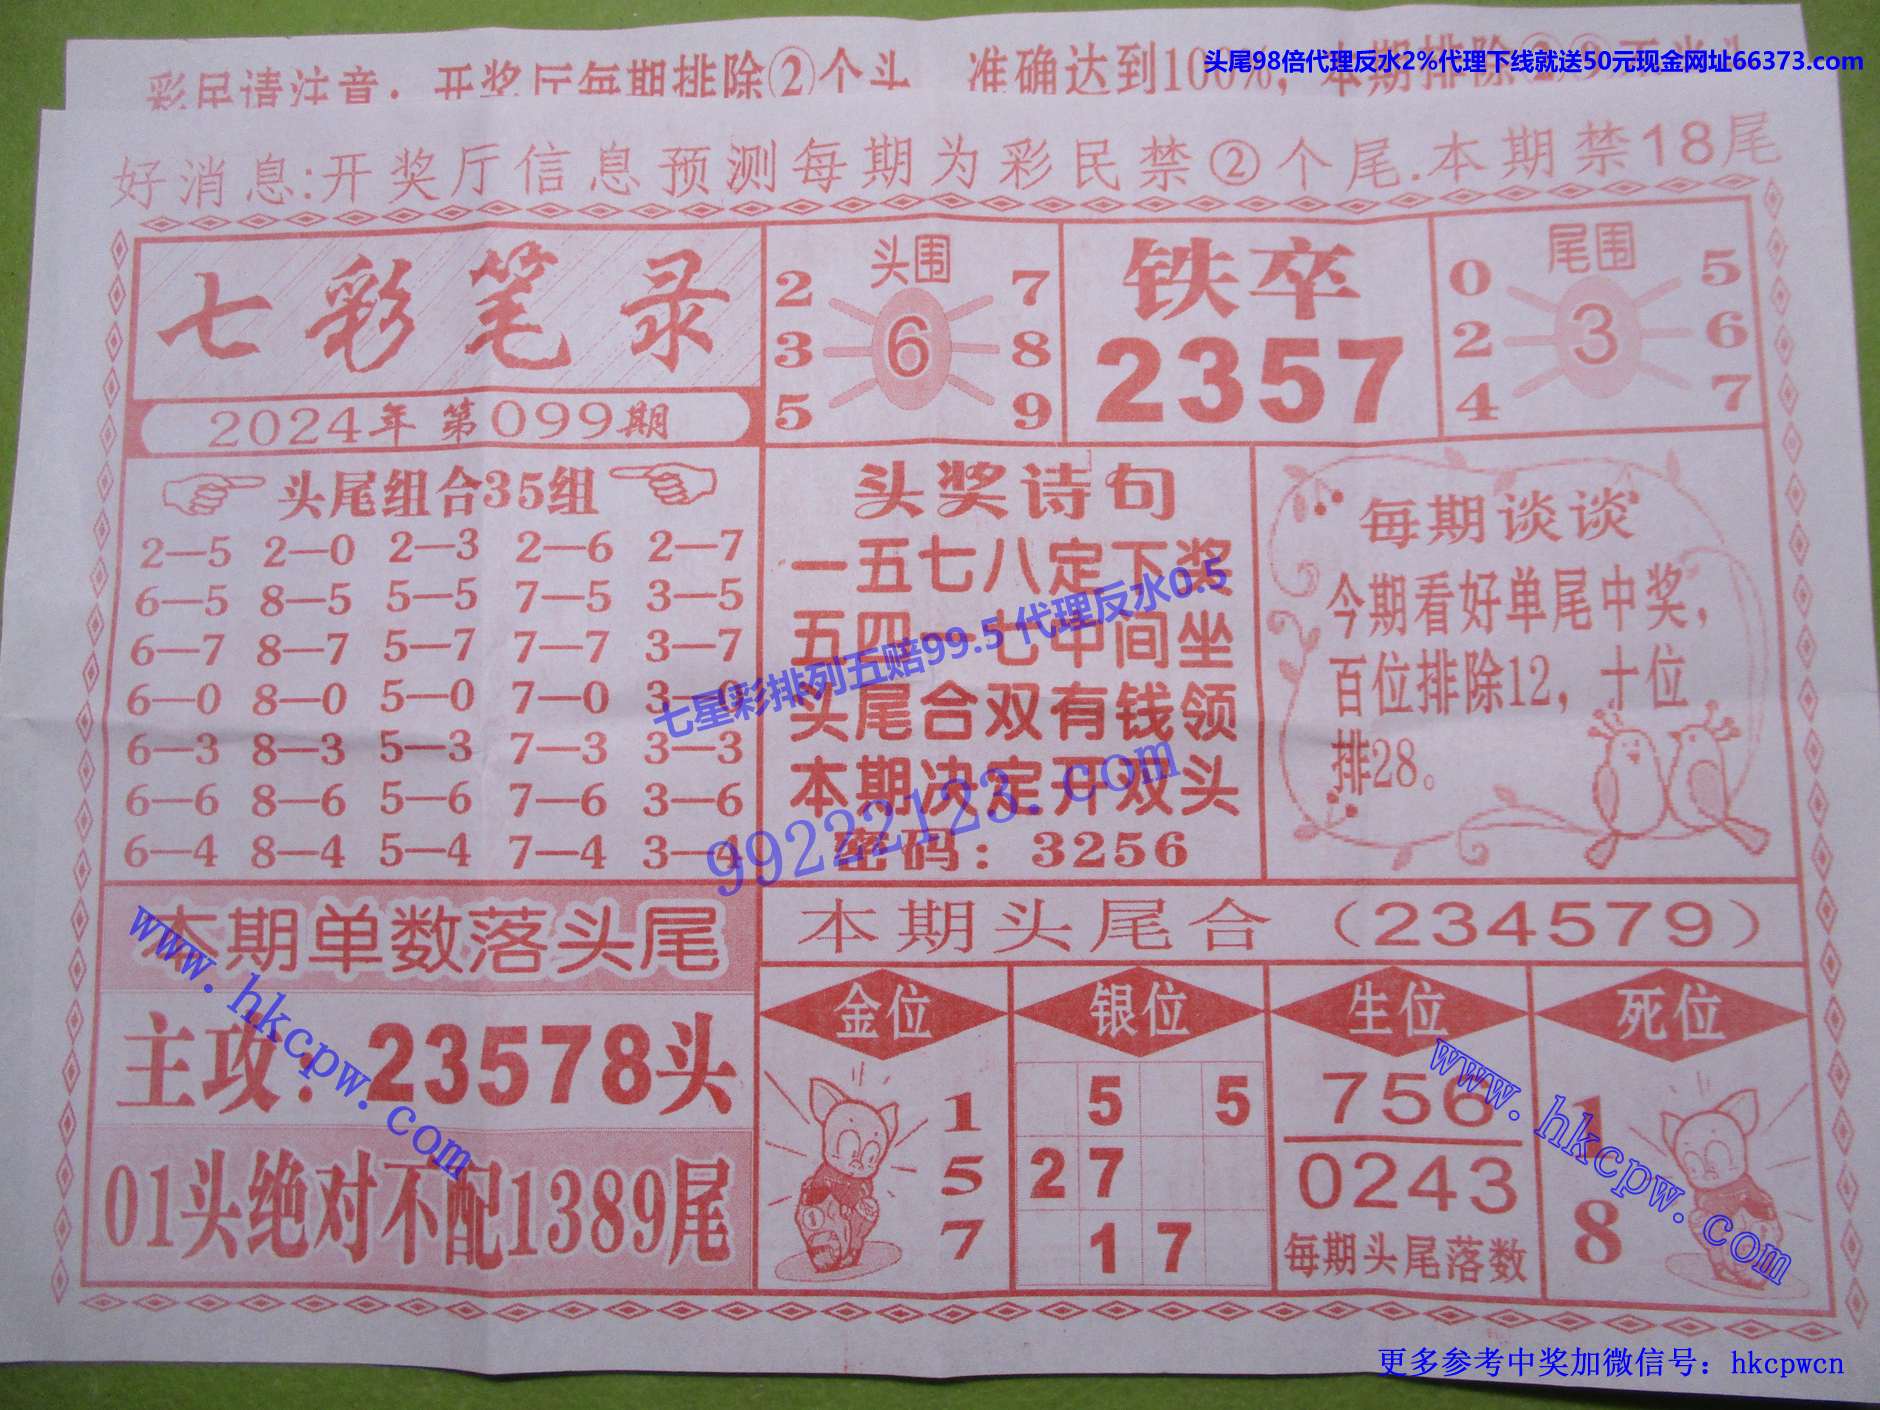 头尾98倍代理反水2%代理下线就送50元现金网址66373.com
彩民请注意：开奖厅每期排除②个头 准确达到100%，本期排除
好消息:开奖厅信息预测每期为彩民禁②个尾.本期禁18尾
七彩笔录
2024年 第099期
头围
2 7
3 6 8
5 9
铁卒
2357
尾围
0 5
2 3 6
4 7
头尾组合35组
2—5 2—0 2—3 2—6 2—7
6—5 8—5 5—5 7—5 3—5
6—7 8—7 5—7 7—7 3—7
6—0 8—0 5—0 7—0 3—0
6—3 8—3 5—3 7—3 3—3
6—6 8—6 5—6 7—6 3—6
6—4 8—4 5—4 7—4 3—4
头奖诗句
一五七八定下奖
五四一七中间坐
头尾合双有钱领
本期决定开双头
密码：3256
七星彩排列五赔99.5 代理反水0.5
99222123.com
每期谈谈
今期看好单尾中奖，
百位排除12，十位
排28。
本期单数落头尾
主攻：23578头
01头绝对不配1389尾
本期头尾合（234579）
金位
1
5
7
银位
5 5
2 7
1 7
生位
756
0243
每期头尾落数
死位
1
8
www.hkcpw.com
www.hkcpw.com
更多参考中奖加微信号：hkcpwcn